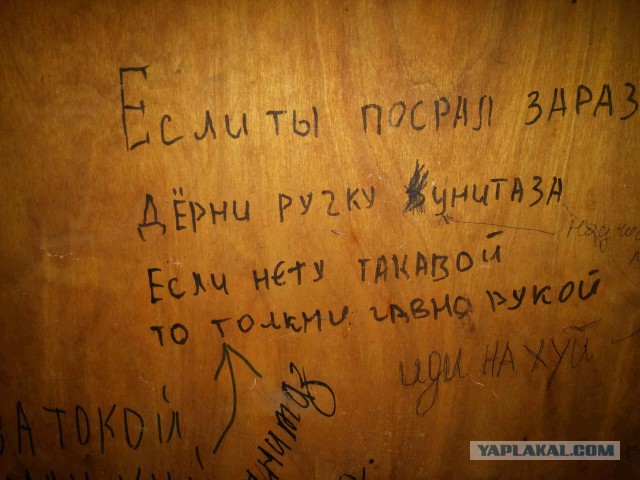 Если ты посрал зараз
дёрни ручку унитаза
если нету такавой
то толкни гавно рукой
иди на хуй
за токой
унитаз
YAPLAKAL.COM